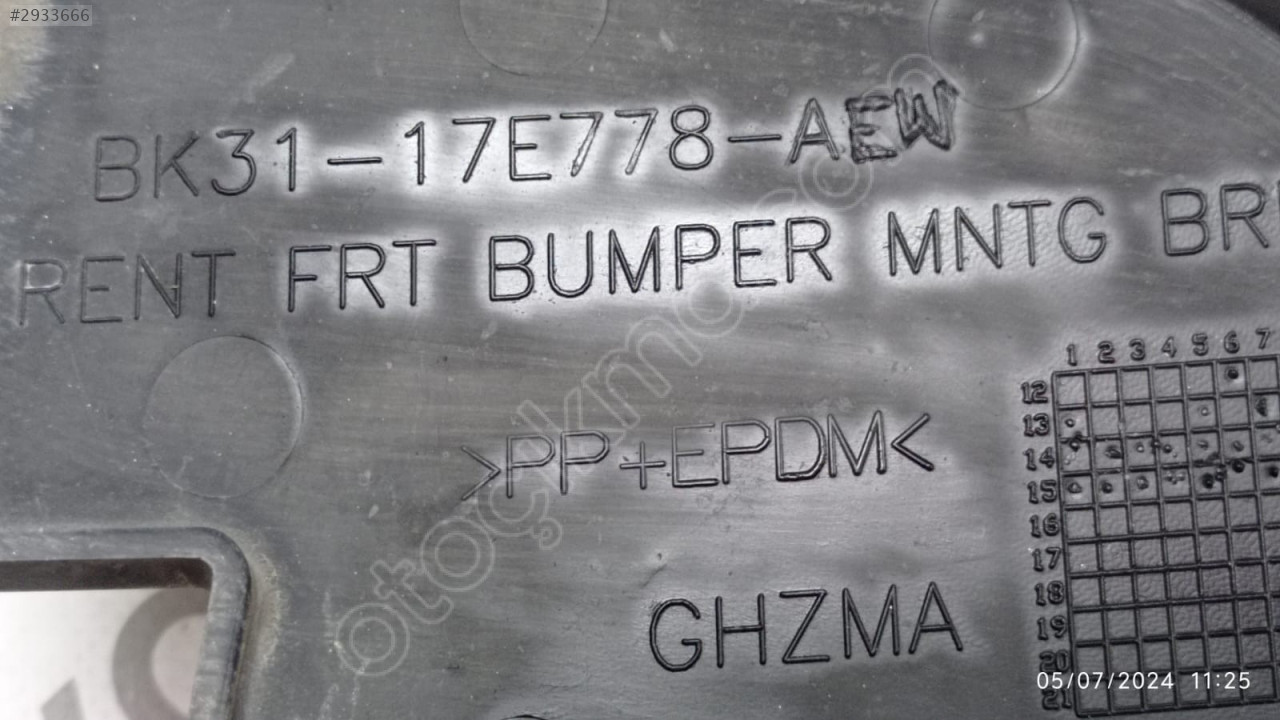 #2933666
BK31-17E778-AEW
RENT FRT BUMPER MNTG
>PP+EPDM<
GHZMA
1 2 3 4 5 6 7
12
13
14
15
16
17
18
19
20
21
otoçıkmo.com
05/07/2024 11:25